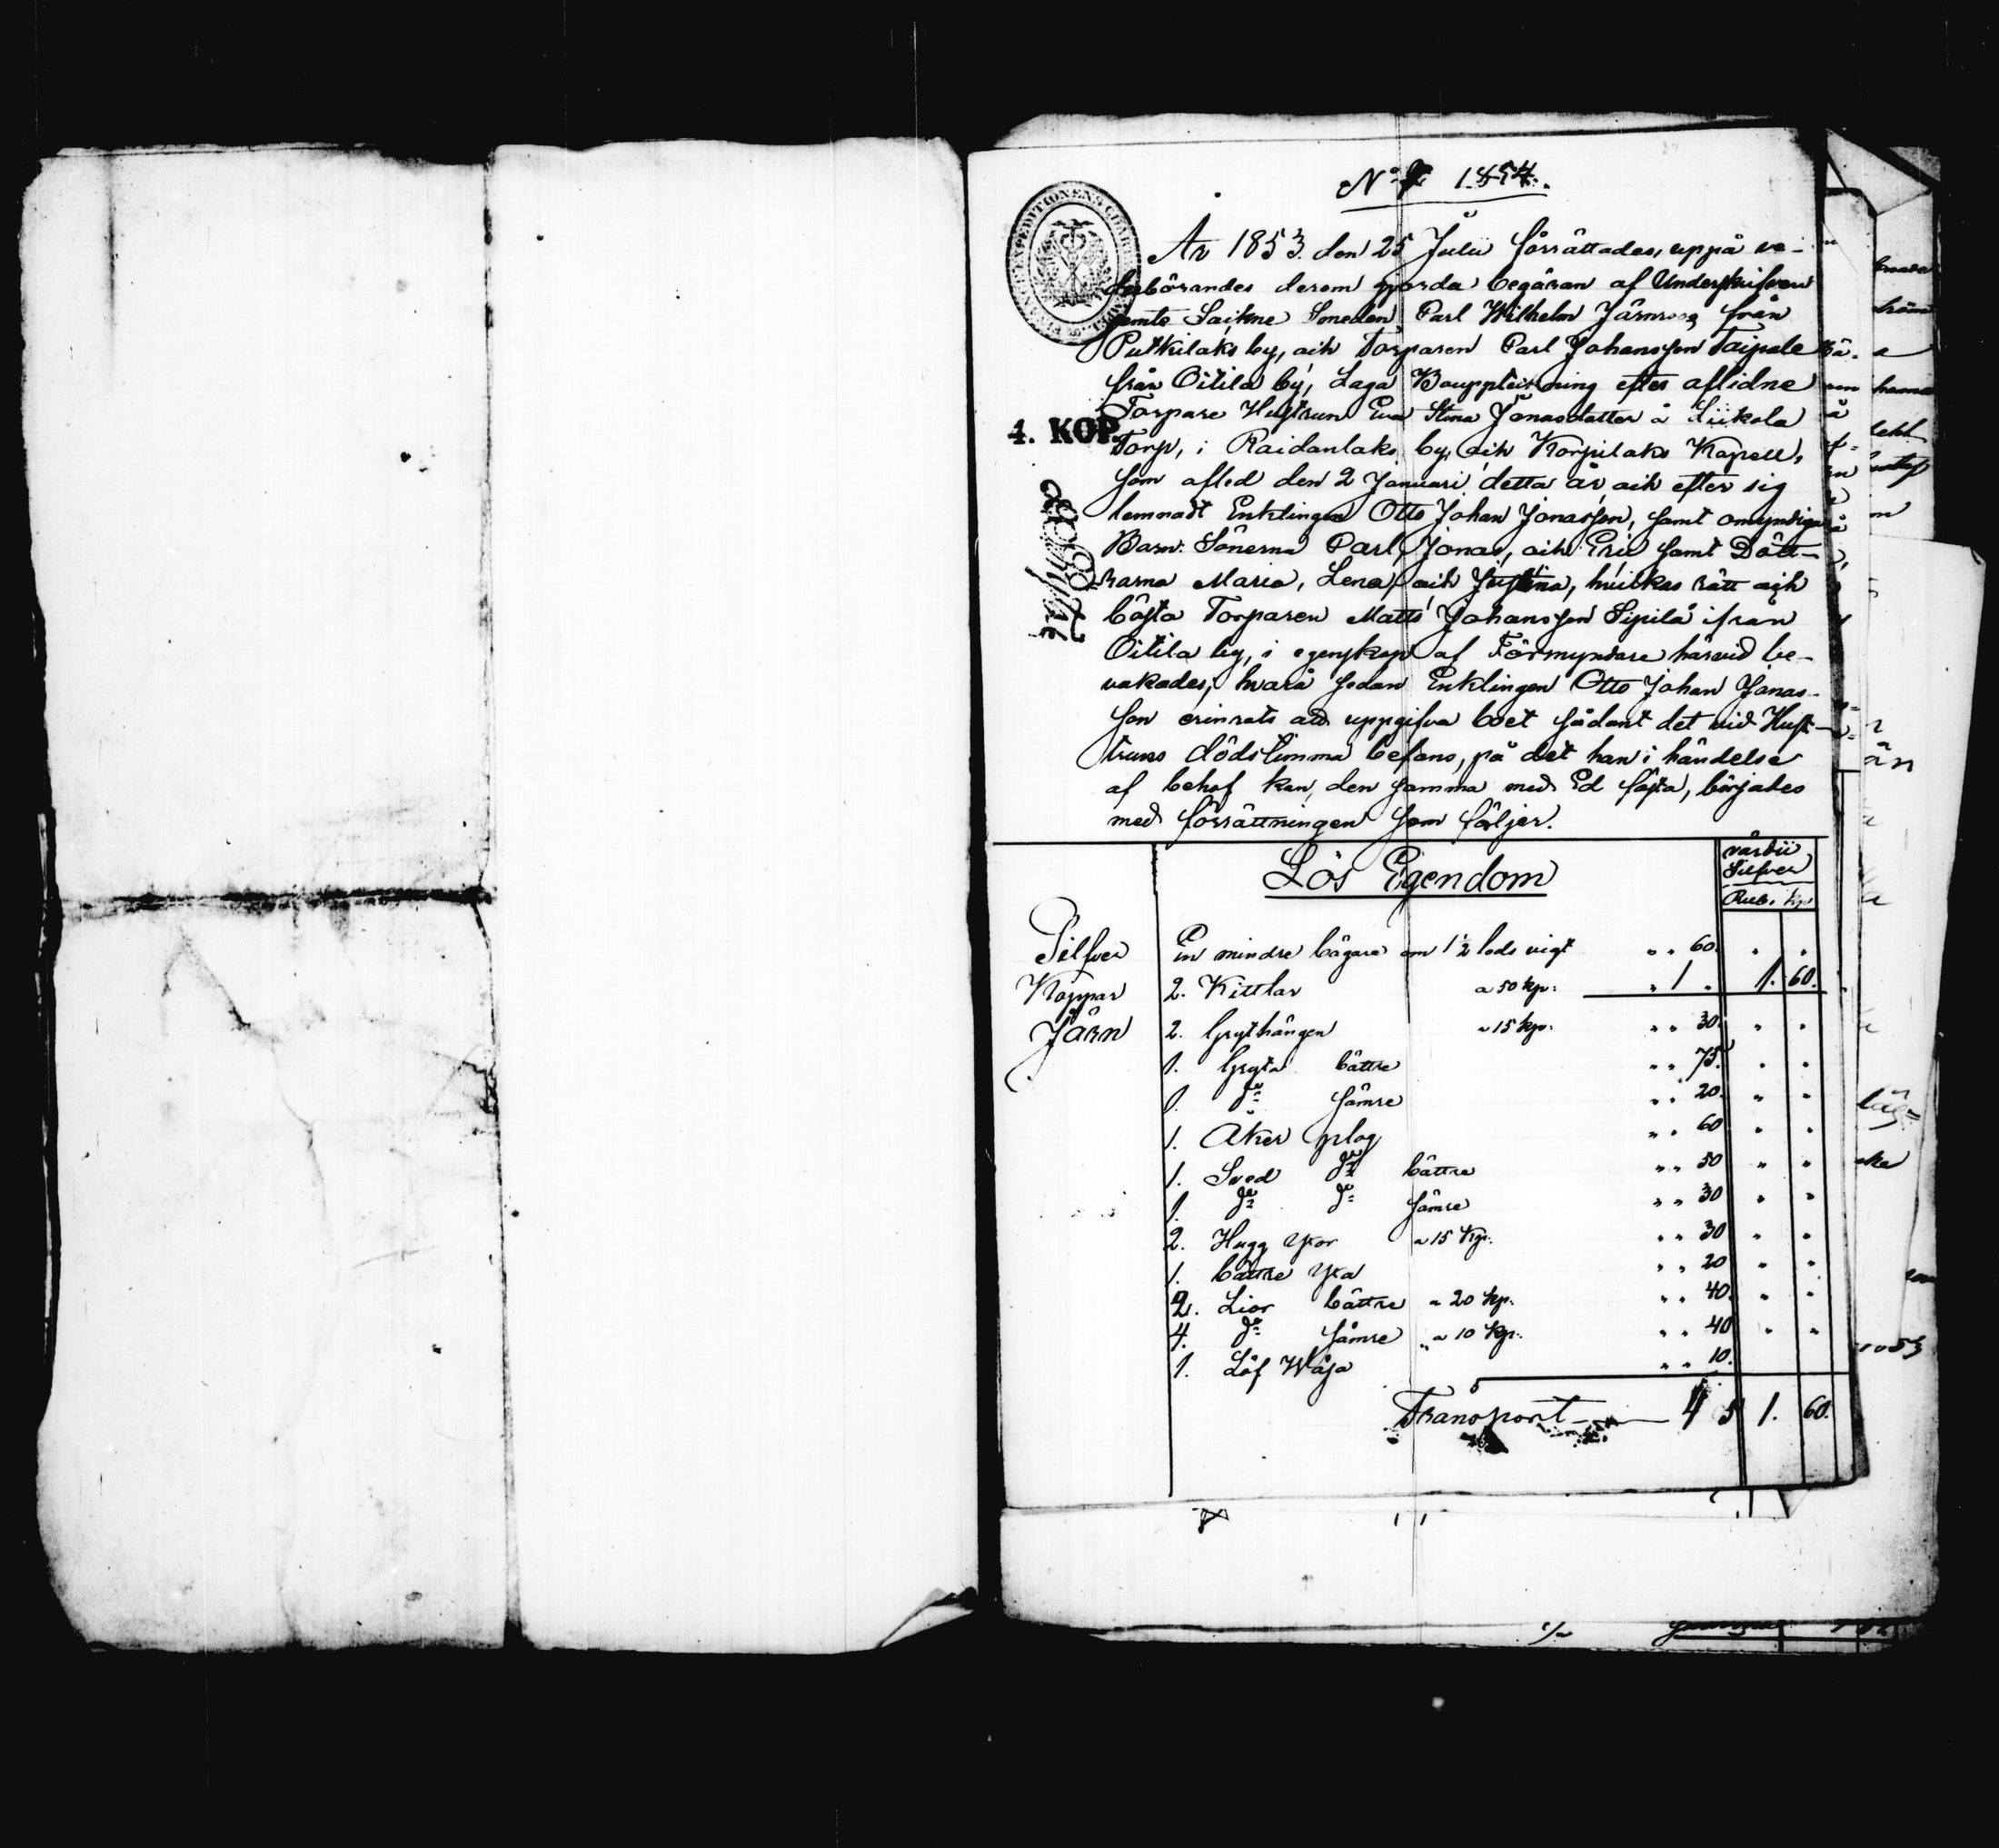 No 7 1854.
År 1853. den 25 Julii förrättades, uppå ve-
derbörandes derom gjorda begäran af Underskrifven
jemte Sockne Smeden Carl Wilhelm Järnroos från
Putkilaks by, och Torparen Carl Johansson Taipale
från Oitila by, Laga Bouppteckning efter aflidne
Torpare Hustrun Eva Stina Jonasdotter å Liikola
4. KOP.
Torp, i Raidanlaks by, och Korpilaks Kapell,
som afled den 2 Januari detta år, och efter sig
lemnadt Enklingen Otto Johan Jonasson, samt omyndiga
Barn: Sönerna Carl, Jonas, och Eric samt Dött-
rarna Maria, Lena, och Justina, hvilkas rätt och
bästa Torparen Matts Johansson Sipilä ifrån
Oitila by, i egenskap af Förmyndare härvid be-
vakades; hvarå sedan Enklingen Otto Johan Jonas-
son erinrats att uppgifva boet sådant det vid Hust-
truns dödstimma befans, på det han i händelse
af behof kan, den samma med Ed fästa, börjades
med förrättningen som följer.
Lös Egendom
värdii
Silfver
Rub. Kp
Silfver En mindre bägare om 1½ lods vigt " " 60. " "
Koppar 2. Kittlar a 50 kp: " 1 " 1. 60.
Järn 2. Grythängen a 15 kp: " " 30. " "
1. Gryta bättre " " 75. " "
1. do sämre " " 20. " "
1. Åker plog " " 60 " "
1. Sved do bättre " " 50 " "
1. do do sämre " " 30 " "
2. Hugg Yxor a 15 Kp: " " 30 " "
1. bättre Yxa " " 20 " "
2. Lior bättre a 20 kp: " " 40. " "
4. do sämre a 10 Kp: " " 40 " "
1. Löf Wåja " " 10.
Transport 4 5 1. 60.